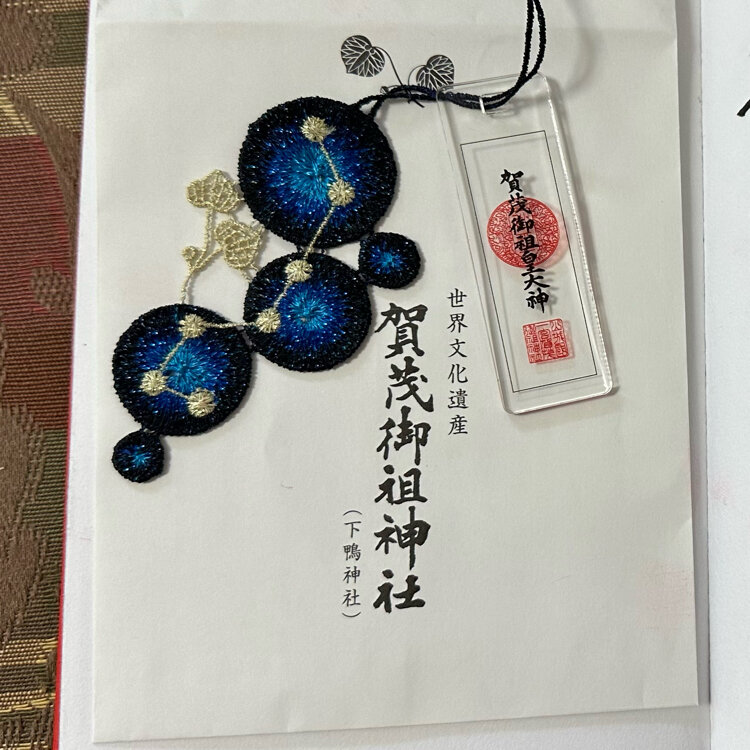 賀茂御祖皇大神
世界文化遺産
賀茂御祖神社
（下鴨神社）